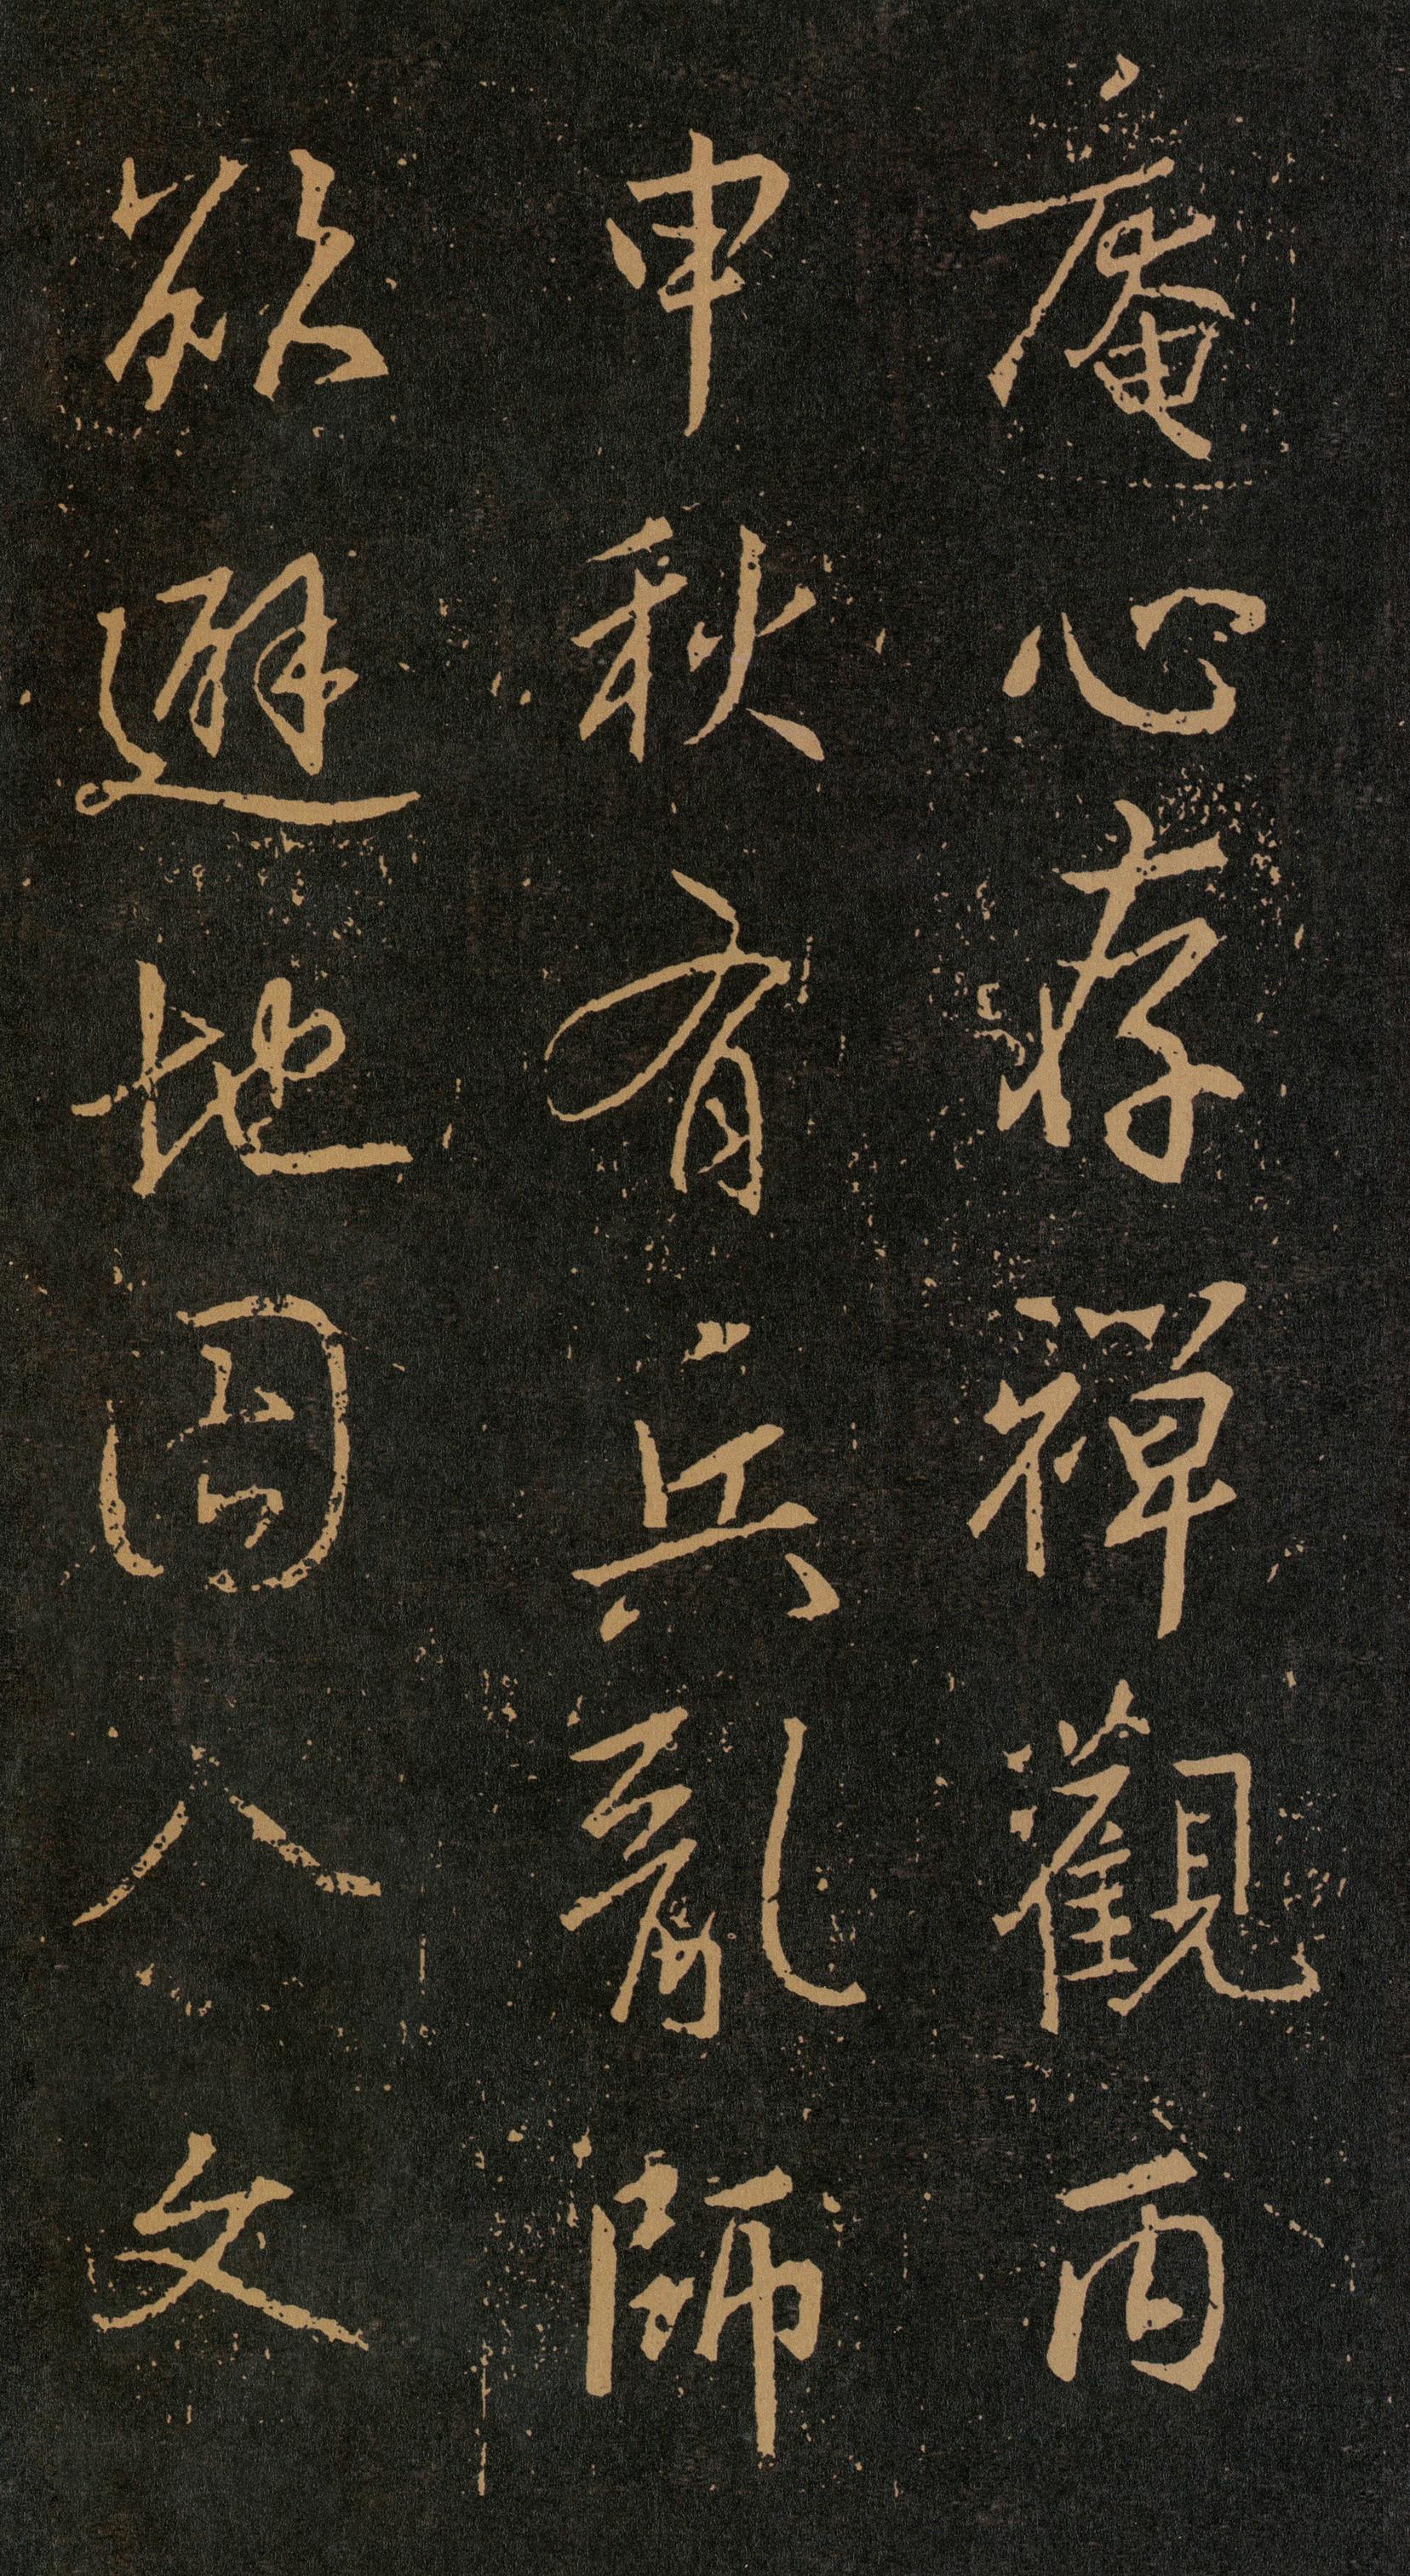 庵心存禪觀丙
申秋有兵亂師
欲避地因人文